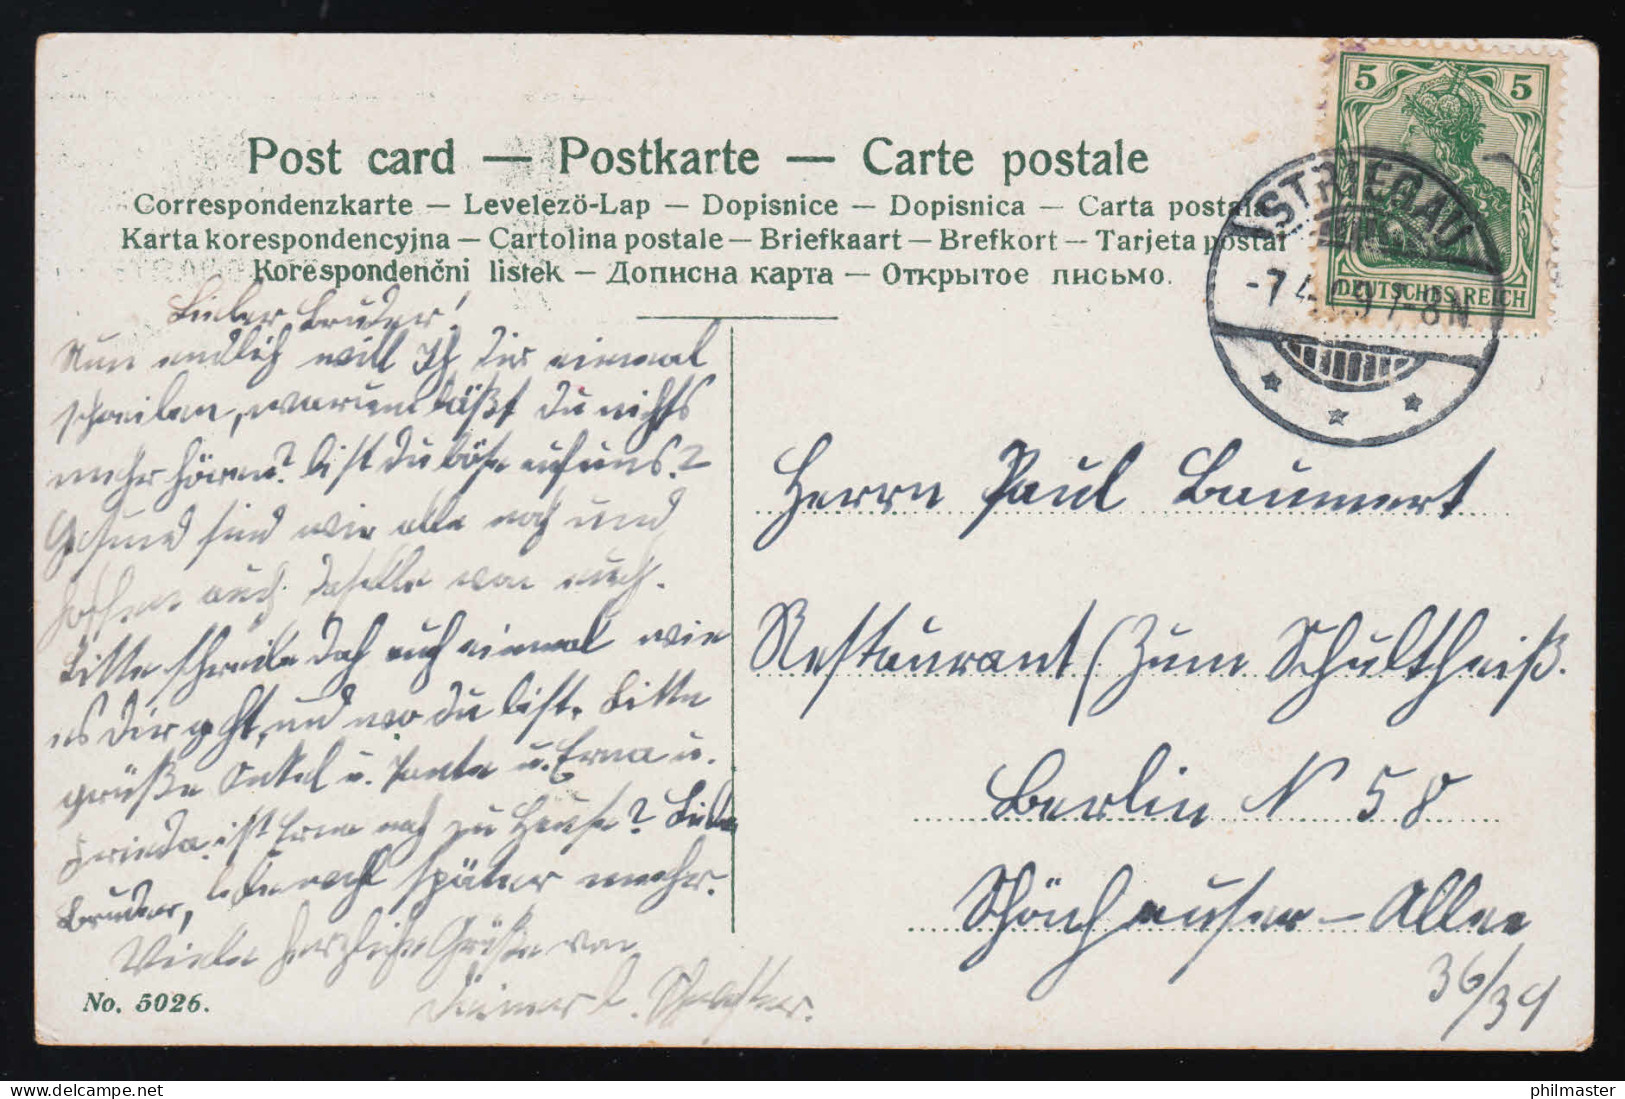 Post card — Postkarte — Carte postale
Correspondenzkarte — Levelezö-Lap — Dopisnice — Dopisnica — Carta postala
Karta korespondencyjna — Cartolina postale — Briefkaart — Brefkort — Tarjeta postal
Korespondenčni listek — Дописна карта — Открытое письмо.
5 5
DEUTSCHES REICH
STRIEGAU
-7 4. 09 7-8N
Lieber Bruder!
Nun endlich will Ich dir einmal
schreiben, warum läßt du nichts
mehr hören? bist du böse auf uns?
Gesund sind wir alle noch und
hoffen auch daselbe von euch.
Bitte schreibe doch auch einmal wie
es dir geht, und wo du bist. Bitte
grüße Onkel u. Tante u. Erna u.
Frieda. ist Erna noch zu Hause? Lieber
Bruder, lebe wohl später mehr.
Viele herzliche Grüße von
deiner l. Schwester.
No. 5026.
Herrn Paul Baumert
Restaurant (Zum Schultheiß.
Berlin N 58
Schönhauser-Allee
36/34
philmaster